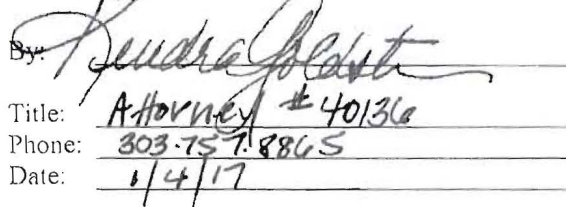 By: Kendra Goldst
Title: Attorney # 40136
Phone: 303.757.8865
Date: 1/4/17